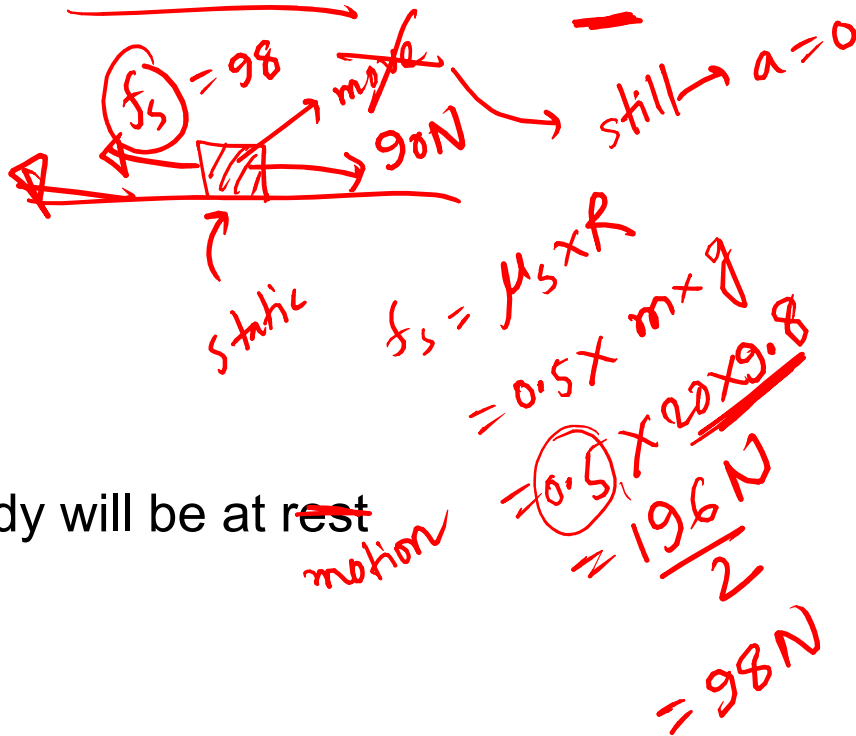 fs = 98
move
90N
still → a = 0
static
fs = μs × R
= 0.5 × m × g
= 0.5 × 20 × 9.8
= 196 N / 2
= 98 N
dy will be at rest
motion